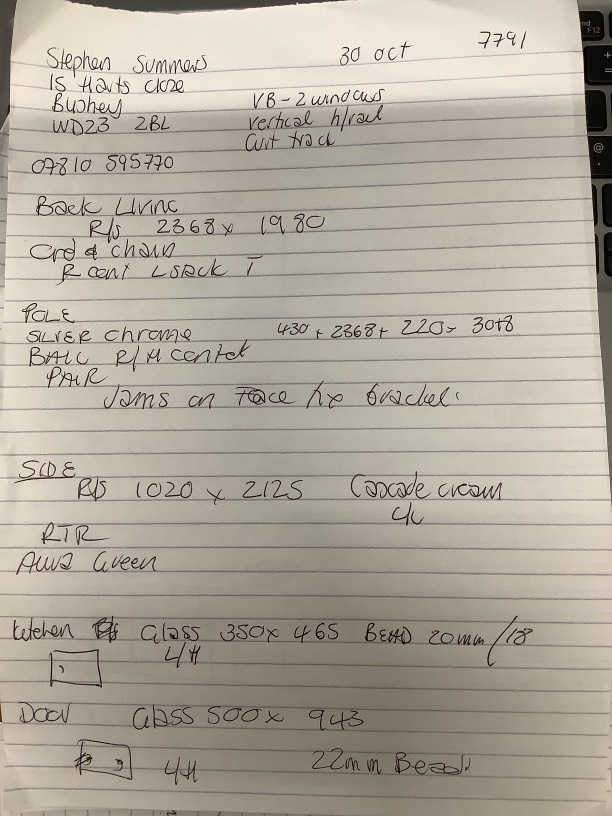 Stephen Summers 30 oct 7791
15 Harts close
Bushey VB - 2 windows
WD23 2BL Vertical h/rail
Curt track
07810 595770
Back Living
R/s 2368 x 1980
Crd & chain
R cont L stack T
POLE
SILVER chrome 430 + 2368 + 220 = 3018
BALL R/H
PAIR
Jams on face fix bracket
SIDE
R/S 1020 x 2125 Cascade cream
RTR
Green
Kitchen Glass 350 x 465 BEAD 20mm/18
L/H
DOOR Glass 500 x 943
L/H 22mm Bead